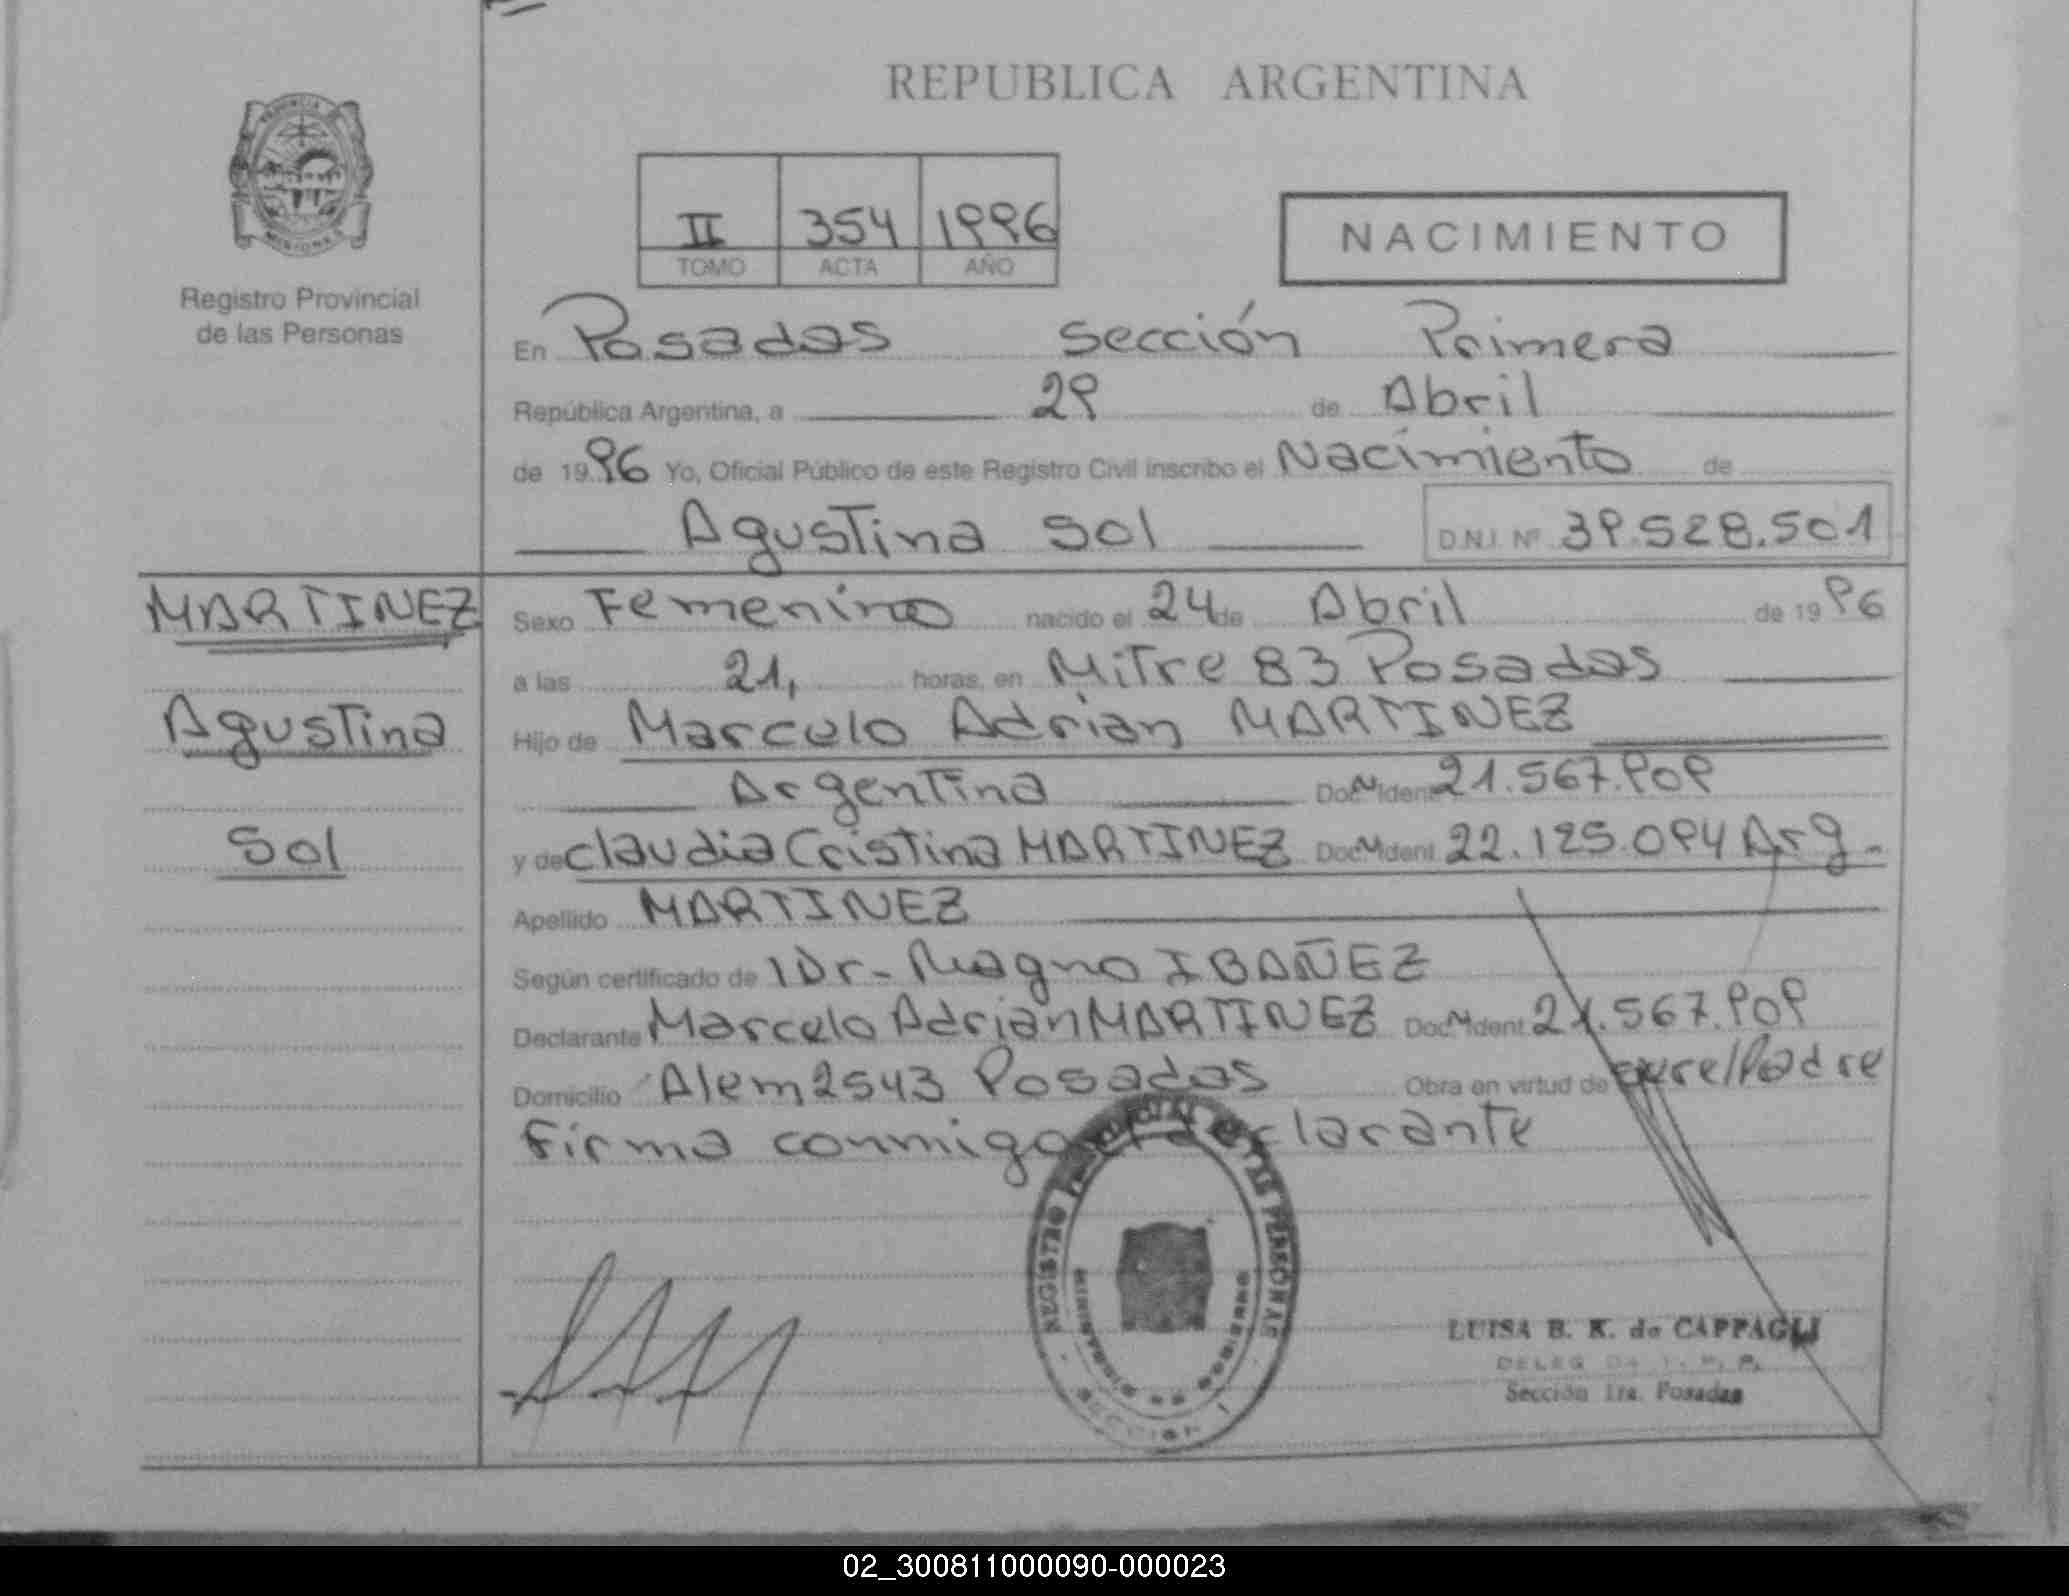 REPUBLICA ARGENTINA
PROVINCIA
MISIONES
Registro Provincial
de las Personas
II 354 1996
TOMO ACTA AÑO
NACIMIENTO
En Posadas sección Primera
República Argentina, a 29 de Abril
de 1996 Yo, Oficial Público de este Registro Civil inscribo el Nacimiento de
Agustina Sol D.N.I. Nº 39.528.501
MARTINEZ
Agustina
Sol
Sexo Femenino nacido el 24 de Abril de 1996
a las 21, horas, en Mitre 83 Posadas
Hijo de Marcelo Adrian MARTINEZ
Argentina Doc. Ident. 21.567.909
y de Claudia Cristina MARTINEZ Doc. Ident. 22.125.094 Arg.
Apellido MARTINEZ
Según certificado de Dr. Magno IBAÑEZ
Declarante Marcelo Adrian MARTINEZ Doc. Ident. 21.567.909
Domicilio Alem 2543 Posadas Obra en virtud de ser el Padre
Firma conmigo el declarante
REGISTRO PROVINCIAL DE LAS PERSONAS
MINISTERIO DE GOBIERNO
SECCION 1
LUISA B. K. de CAPPAGLI
Sección 1ra. Posadas
02_300811000090-000023